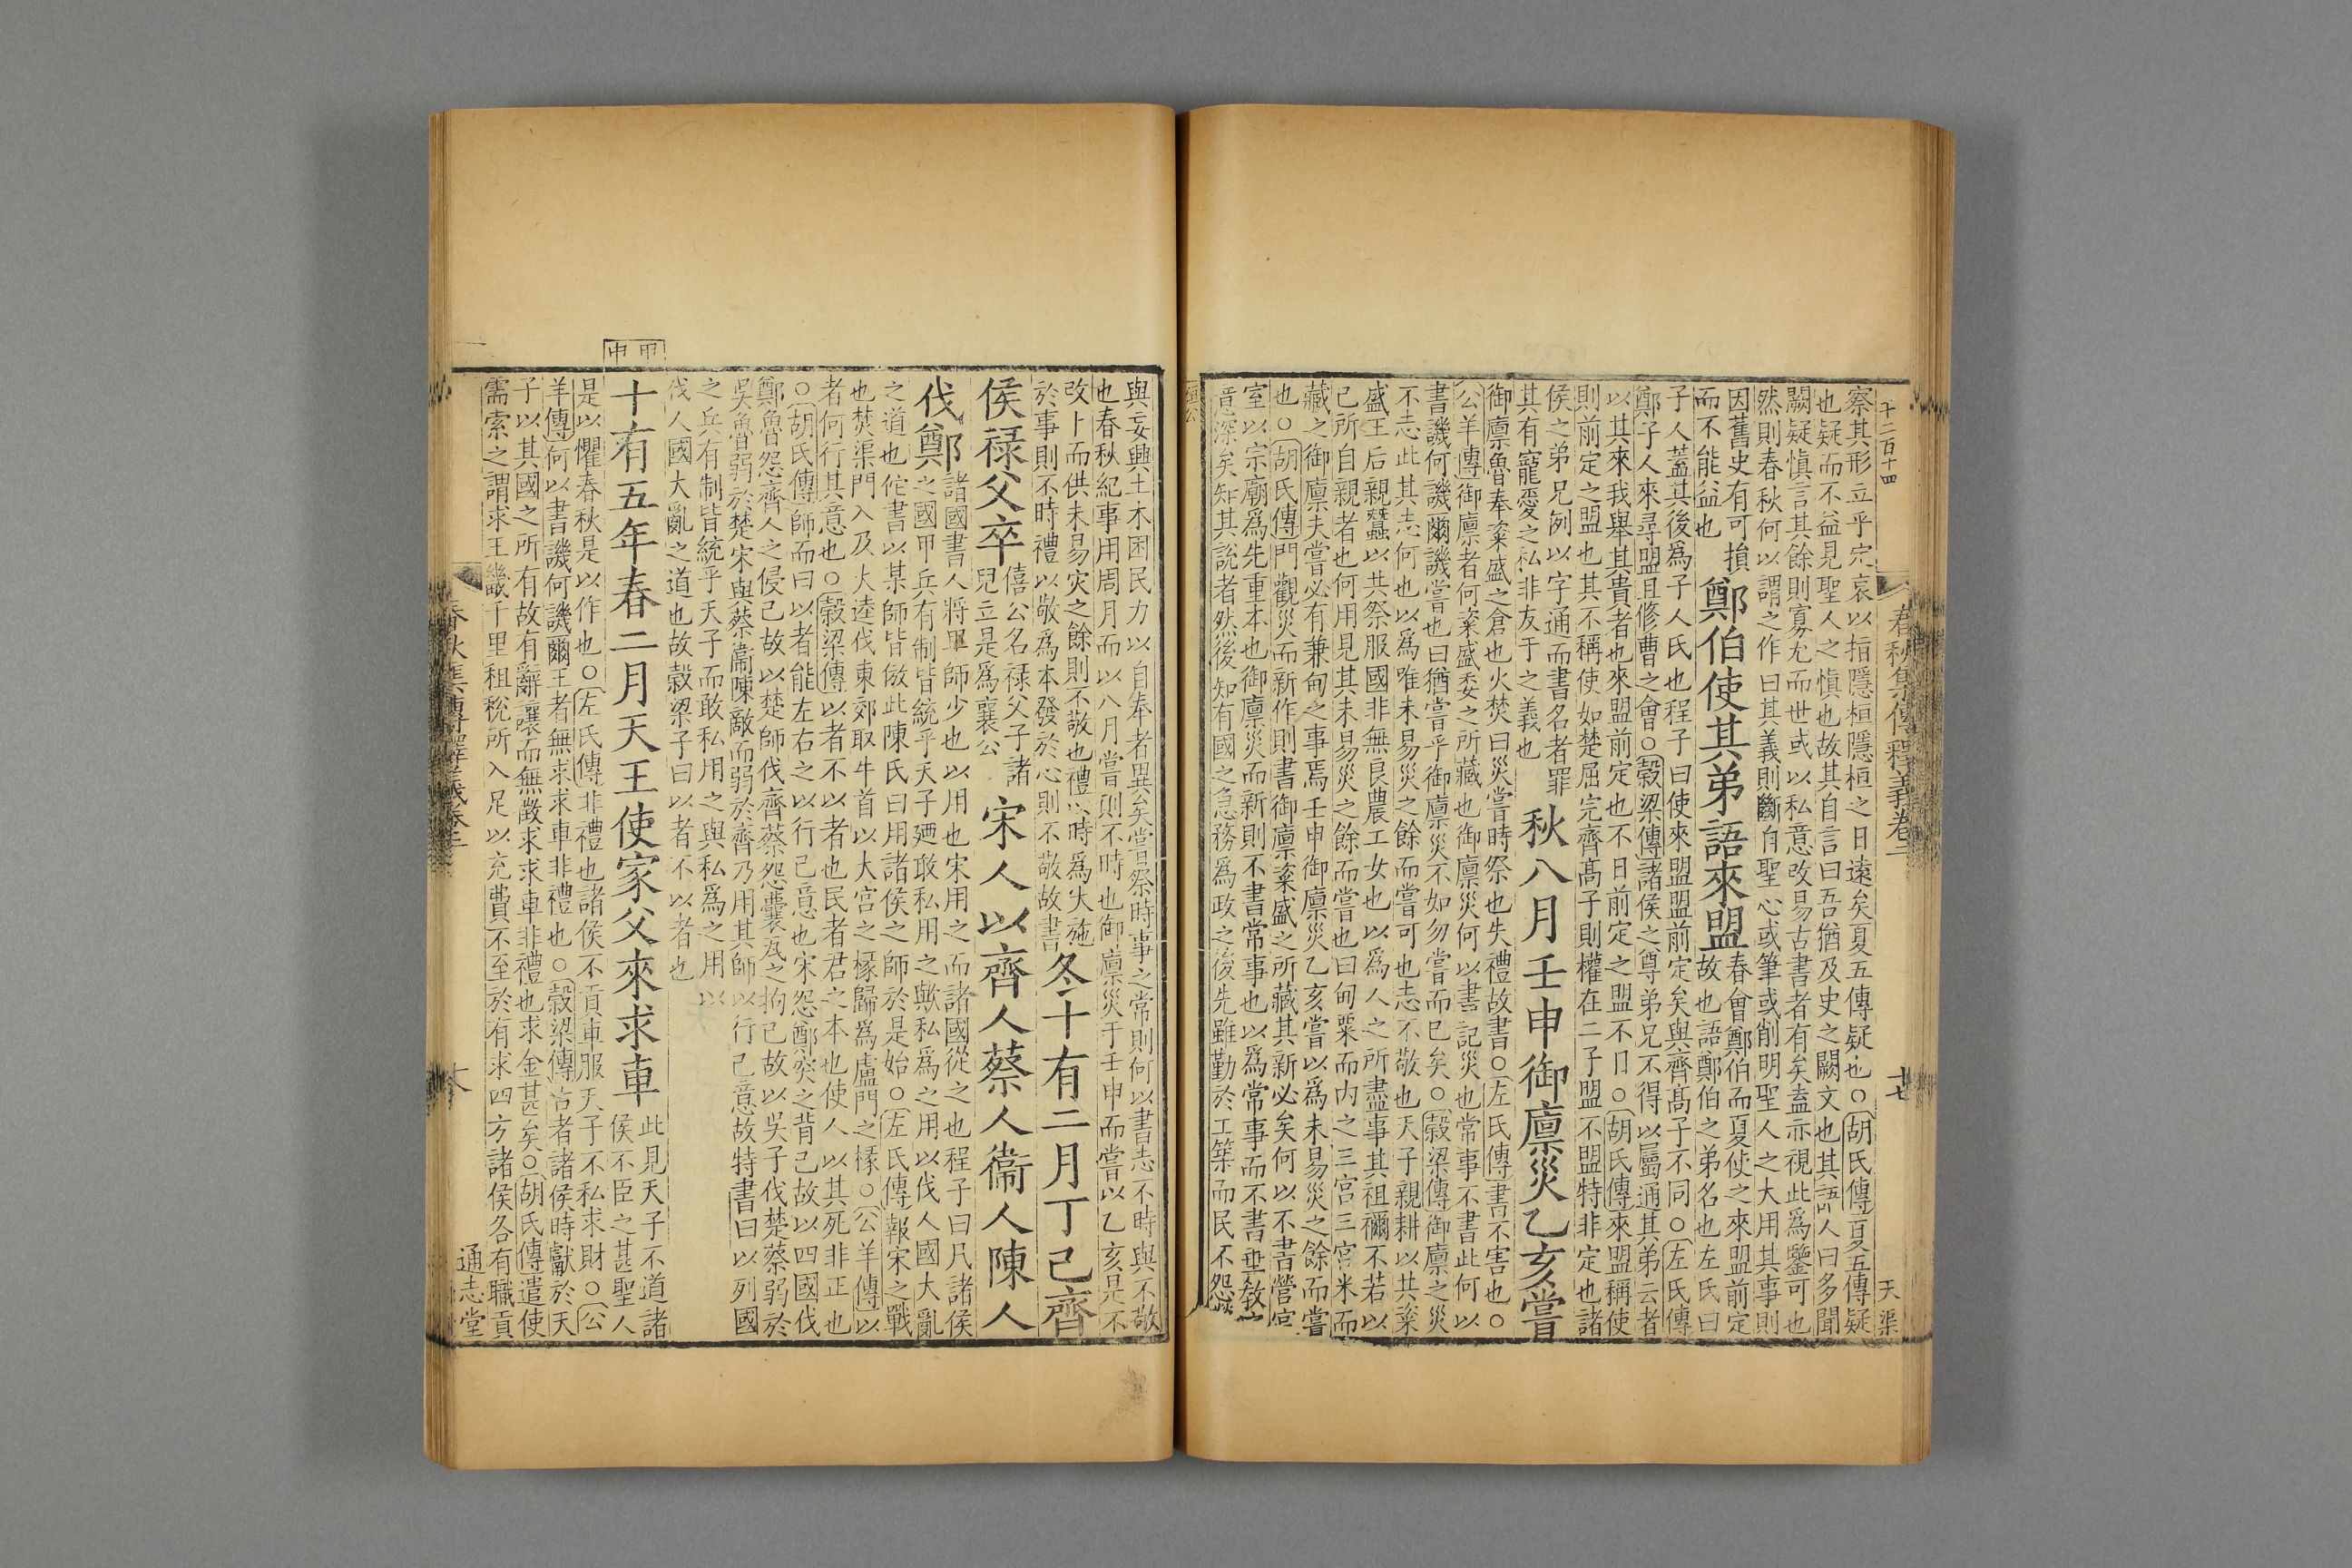 千二百十四
春秋集傳釋義卷三
十七
天渠
察其形立乎定哀以指隱桓隱桓之日遠矣夏五傳疑也○胡氏傳夏五傳疑
也疑而不益見聖人之慎也故其自言曰吾猶及史之闕文也其語人曰多聞
闕疑慎言其餘則寡尤而世或以私意改易古書者有矣盍亦視此爲鑒可也
然則春秋何以謂之作曰其義則斷自聖心或筆或削明聖人之大用其事則
因舊史有可損
而不能益也
鄭伯使其弟語來盟
春會鄭伯而夏使之來盟前定
故也語鄭伯之弟名也左氏曰
子人蓋其後爲子人氏也程子曰使來盟盟前定矣與齊髙子不同○左氏傳
鄭子人來尋盟且修曹之會○穀梁傳諸侯之尊弟兄不得以屬通其弟云者
以其來我舉其貴者也來盟前定也不日前定之盟不日○胡氏傳來盟稱使
則前定之盟也其不稱使如楚屈完齊髙子則權在二子盟不盟特非定也諸
侯之弟兄例以字通而書名者罪
其有寵愛之私非友于之義也
秋八月壬申御廩災乙亥嘗
御廩魯奉粢盛之倉也火焚曰災嘗時祭也失禮故書○左氏傳書不害也○
公羊傳御廩者何粢盛委之所藏也御廩災何以書記災也常事不書此何以
書譏何譏爾譏嘗也曰猶嘗乎御廩災不如勿嘗而已矣○穀梁傳御廩之災
不志此其志何也以爲唯未易災之餘而嘗可也志不敬也天子親耕以共粢
盛王后親蠶以共祭服國非無良農工女也以爲人之所盡事其祖禰不若以
己所自親者也何用見其未易災之餘而嘗也曰甸粟而内之三宮三宮米而
藏之御廩夫嘗必有兼甸之事焉壬申御廩災乙亥嘗以爲未易災之餘而嘗
也○胡氏傳門觀災而新作則書御廩粢盛之所藏其新必矣何以不書營宮
室以宗廟爲先重本也御廩災而新則不書常事也以爲常事而不書垂教之
意深矣知其說者然後知有國之急務爲政之後先雖勤於工築而民不怨
桓公
與妄興土木困民力以自奉者異矣嘗祭時事之常則何以書志不時與不敬
也春秋紀事用周月而以八月嘗則不時也御廩災于壬申而嘗以乙亥是不
改卜而供未易灾之餘則不敬也禮以時爲大施
於事則不時禮以敬爲本發於心則不敬故書
冬十有二月丁己齊
侯禄父卒
僖公名禄父子諸
兒立是爲襄公
宋人以齊人蔡人衞人陳人
伐鄭
諸國書人將卑師少也以用也宋用之而諸國從之也程子曰凡諸侯
之國甲兵有制皆統乎天子廼敢私用之與私爲之用以伐人國大亂
之道也佗書以某師皆倣此陳氏曰用諸侯之師於是始○左氏傳報宋之戰
也焚渠門入及大逵伐東郊取牛首以大宮之椽歸爲盧門之椽○公羊傳以
者何行其意也○穀梁傳以者不以者也民者君之本也使人以其死非正也
○胡氏傳師而曰以者能左右之以行己意也宋怨鄭突之背己故以四國伐
鄭魯怨齊人之侵己故以楚師伐齊蔡怨囊瓦之拘己故以吳子伐楚蔡弱於
吳魯弱於楚宋與蔡衞陳敵而弱於齊乃用其師以行己意故特書曰以列國
之兵有制皆統乎天子而敢私用之與私爲之用以
伐人國大亂之道也故穀梁子曰以者不以者也
甲申
十有五年春二月天王使家父來求車
此見天子不道諸
侯不臣之甚聖人
是以懼春秋是以作也○左氏傳非禮也諸侯不貢車服天子不私求財○公
羊傳何以書譏何譏爾王者無求求車非禮也○穀梁傳古者諸侯時獻於天
子以其國之所有故有辭讓而無徵求求車非禮也求金甚矣○胡氏傳遣使
需索之謂求王畿千里租稅所入足以充費不至於有求四方諸侯各有職貢
春秋集傳釋義卷三
通志堂